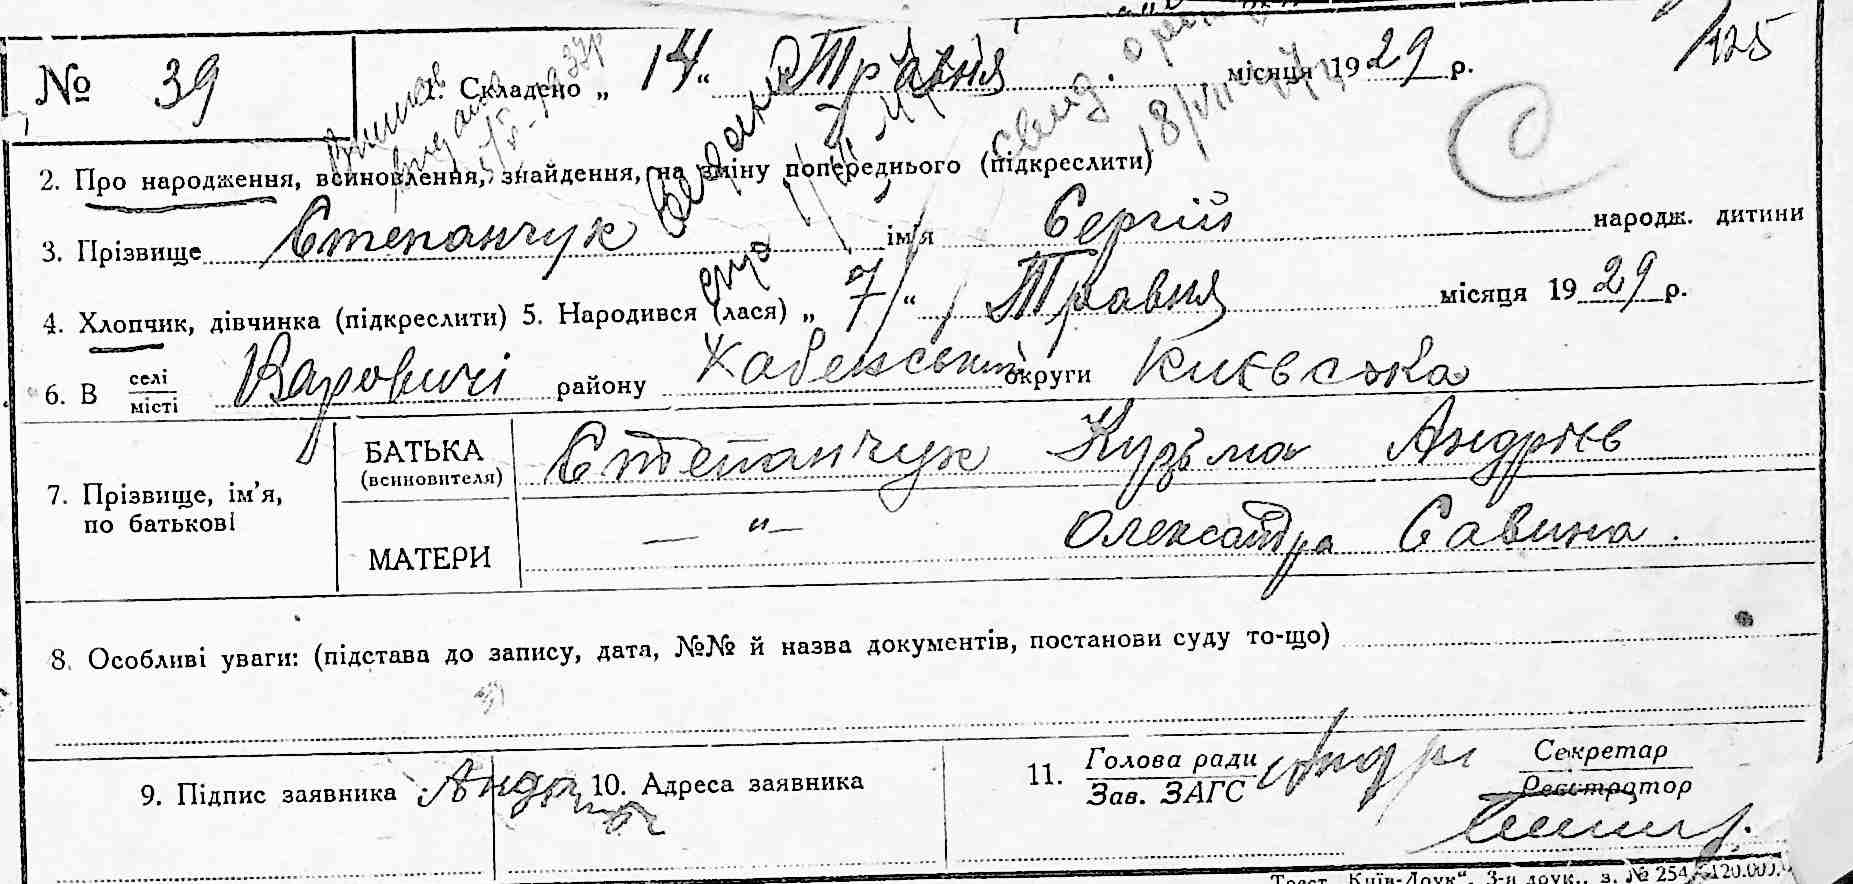 125
№ 39
1. Складено „ 14 “ Травня місяця 1929 р.
2. Про народження, всиновлення, знайдення, на зміну попереднього (підкреслити)
3. Прізвище Степанчук ім'я Сергій народж. дитини
4. Хлопчик, дівчинка (підкреслити) 5. Народився (лася) „ 7 “ Травня місяця 1929 р.
6. В селі/місті Варовичі району Хабенський округи Києвська
7. Прізвище, ім'я, по батькові
БАТЬКА (всиновителя) Степанчук Кузьма Андрієв
МАТЕРИ — „ — Олександра Савина.
8. Особливі уваги: (підстава до запису, дата, №№ й назва документів, постанови суду то-що)
9. Підпис заявника
10. Адреса заявника
11. Голова ради
Зав. ЗАГС
Секретар
Реєстратор
Трест „Київ-Друк“, 3-я друк., з. № 254